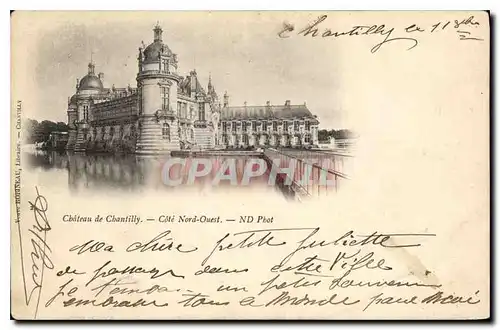 Chantilly le 11 8bre
Vve BOURNEAU, Libraire. — CHANTILLY
CPARAMA
Château de Chantilly. — Côté Nord-Ouest. — ND Phot
Ma chère petite Juliette
de passage dans cette Ville
je un petit souvenir
Embrasse tous le Monde pour Moi
Arthur